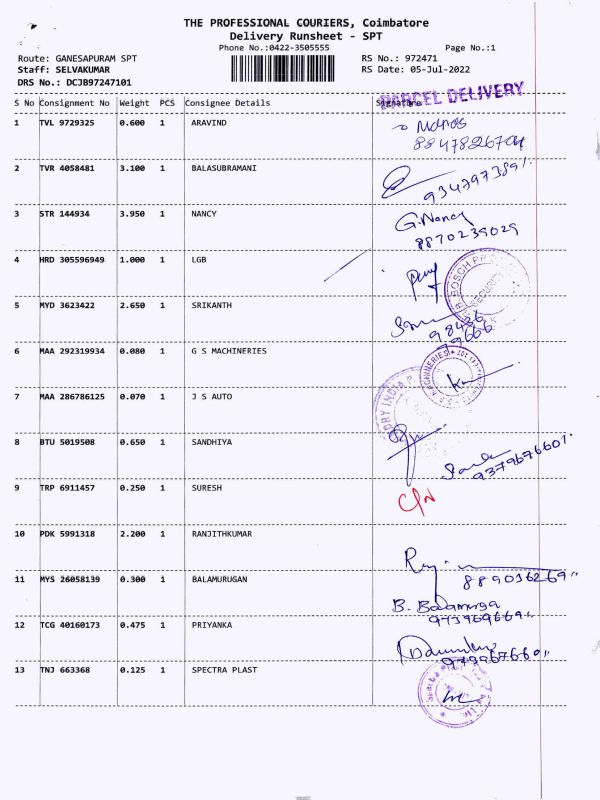 THE PROFESSIONAL COURIERS, Coimbatore
Delivery Runsheet - SPT
Phone No.:0422-3505555 Page No.:1
Route: GANESAPURAM SPT RS No.: 972471
Staff: SELVAKUMAR RS Date: 05-Jul-2022
DRS No.: DCJB97247101
PARCEL DELIVERY
S No Consignment No Weight PCS Consignee Details Signature
1 TVL 9729325 0.600 1 ARAVIND
2 TVR 4058481 3.100 1 BALASUBRAMANI
3 STR 144934 3.950 1 NANCY G. Nancy
8870239029
4 HRD 305596949 1.000 1 LGB
5 MYD 3623422 2.650 1 SRIKANTH
98436
6 MAA 292319934 0.080 1 G S MACHINERIES
7 MAA 286786125 0.070 1 J S AUTO
8 BTU 5019508 0.650 1 SANDHIYA
9379676601
9 TRP 6911457 0.250 1 SURESH
10 PDK 5991318 2.200 1 RANJITHKUMAR
11 MYS 26058139 0.300 1 BALAMURUGAN
12 TCG 40160173 0.475 1 PRIYANKA
13 TNJ 663368 0.125 1 SPECTRA PLAST